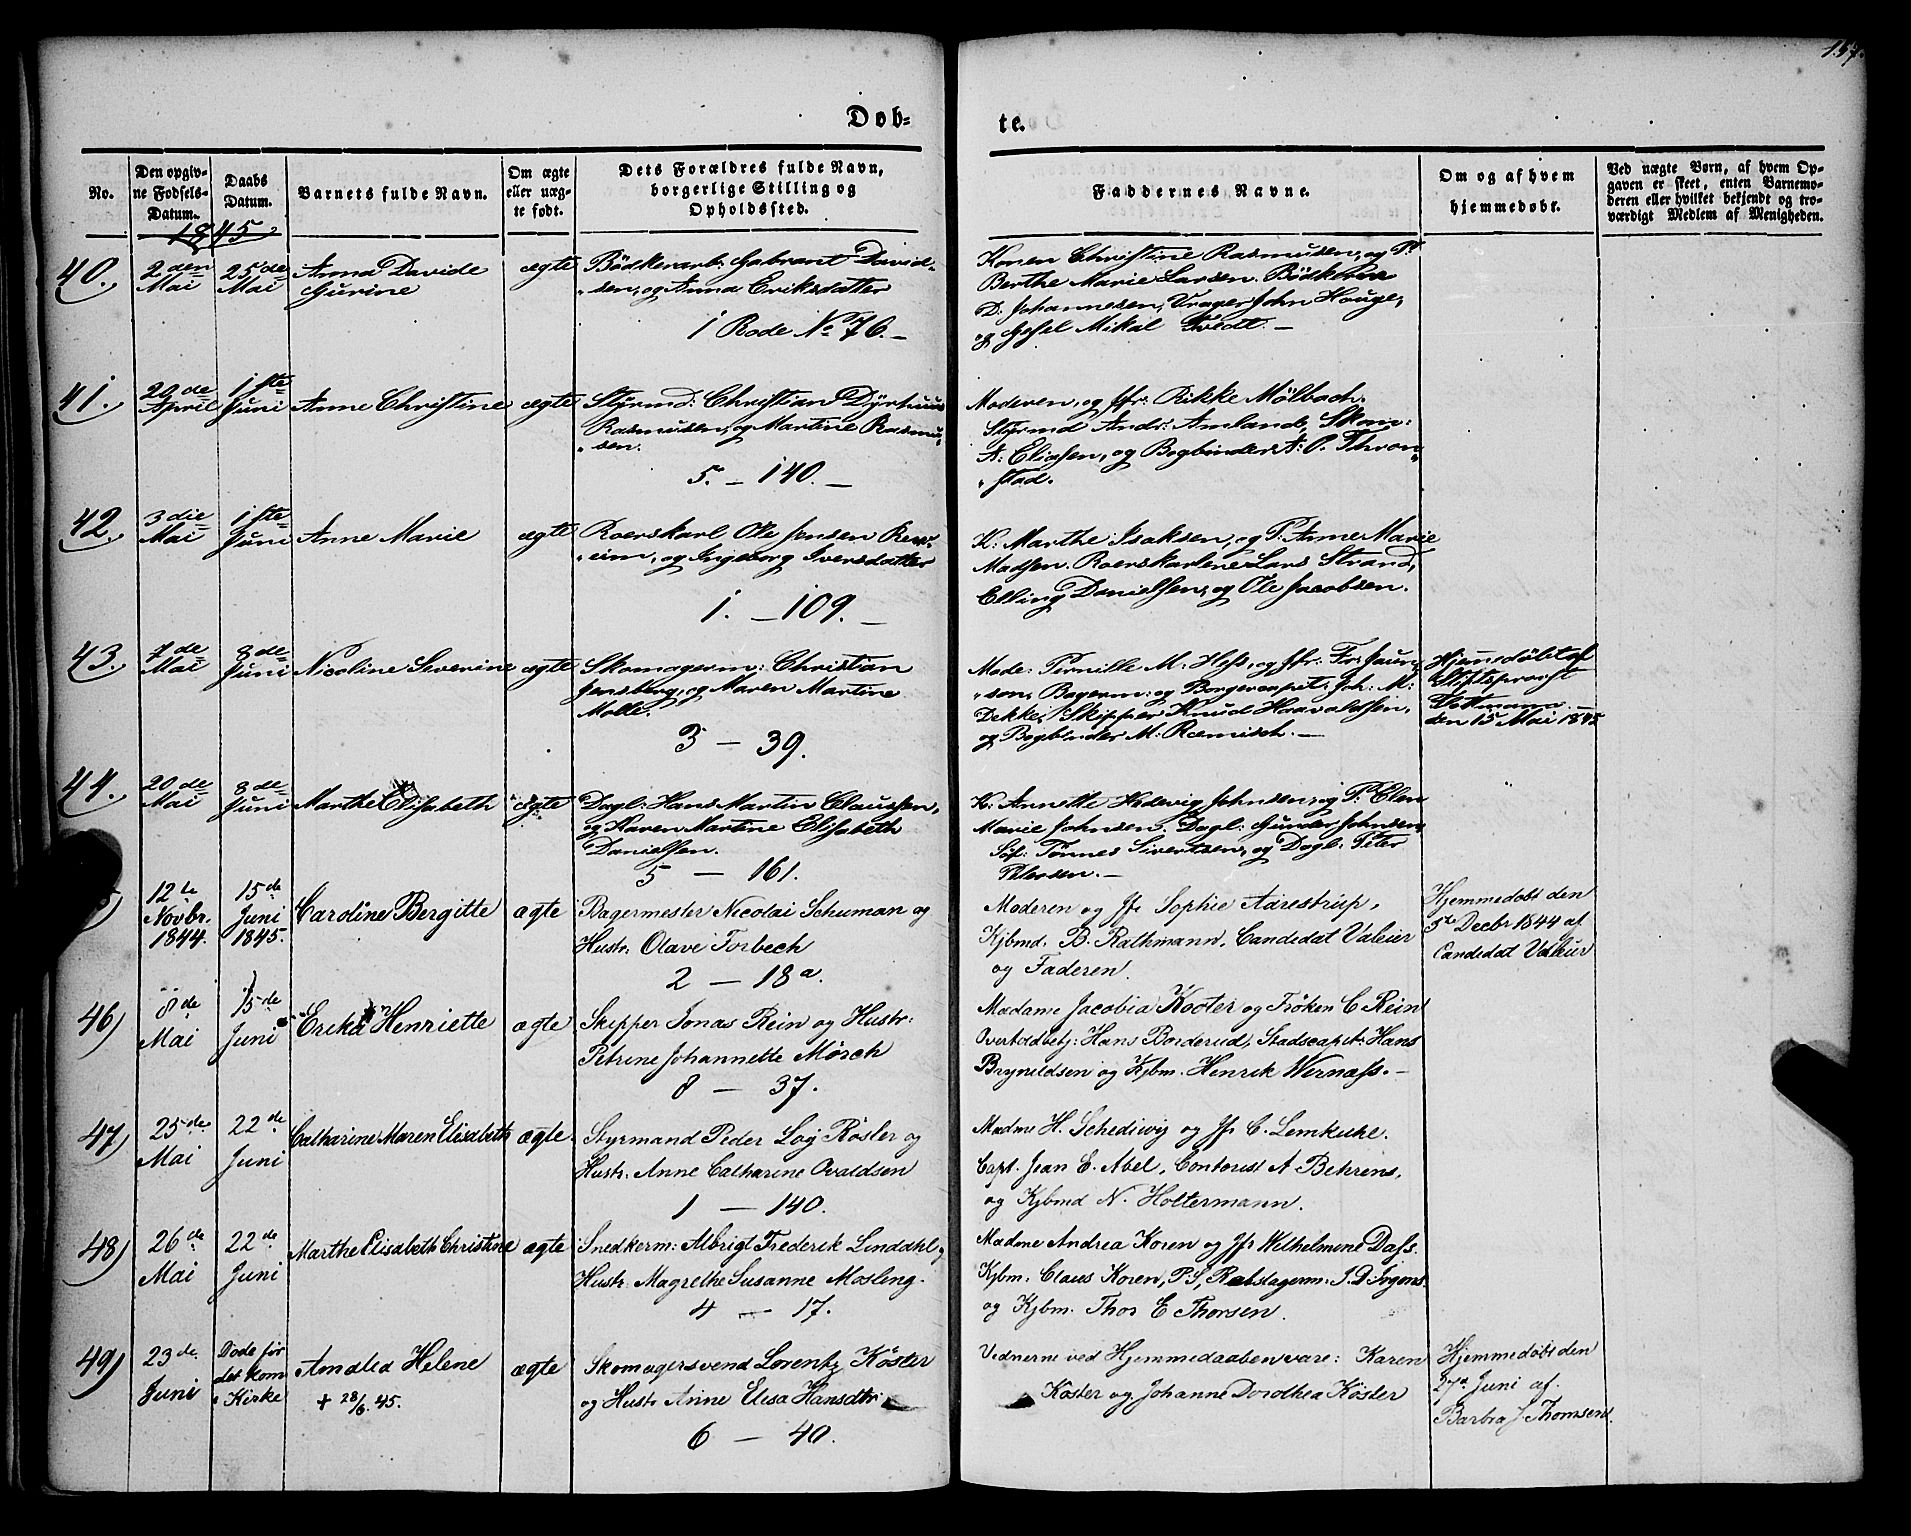 157.
Døb-
te.
No.
Den opgiv-
ne Fødsels-
Datum.
Daabs
Datum.
Barnets fulde Navn.
Om ægte
eller uæg-
te født.
Dets Forældres fulde Navn,
borgerlige Stilling og
Opholdssted.
Faddernes Navne.
Om og af hvem
hjemmedøbt.
Ved uægte Børn, af hvem Op-
gaven er skeet, enten Barnemo-
deren eller hvilket bekjendt og tro-
værdigt Medlem af Menigheden.
1845
40.
2den
Mai
25de
Mai
Anna Davide
Gurine
ægte
Bødkerarb: Gabrant David-
"sen, og Anna Eriksdatter
1 Rode No 76.
Konen Christine Rasmusen, og P:
Berthe Marie Larsen. Bødkerne
D. Johannesen, Vrager John Houge,
og Mikal Tvedt.
41.
29de
April
1ste
Juni
Anne Christine
ægte
Styrmd: Christian Dyrhuus
Rasmusen, og Martine Rasmu-
"sen.
5. — 140. —
Moderen, og Jfr: Rikke Mølbach.
Styrmd Andr: Amland, Skom:
A: Eliasen, og Bogbinder A: P. Thron-
"stad.
42.
3die
Mai
1ste
Juni
Anne Marie
ægte
Roerskarl Ole Jensen
"eim, og Ingeborg Iversdatter
1. — 109. —
K: Marthe Isaksen, og P: Anne Marie
Madsen. Roerskarlene Lars Strand,
Elling Danielsen, og Ole Jacobsen.
43.
7de
Mai
8de
Juni
Nicoline Severine
ægte
Skomagerm: Christian
Jensberg, og Maren Martine
Molle.
3 — 39.
Made: Pernille M: Hess, og Jfr: Fr: Jaur-
"son, Bagerm: og Borgercapit: Joh: M:
Dekke, Skipper Knud Haavaldsen,
og Bogbinder M: Ræmisch. —
Hjemedøbt af
Stiftsprovst
den 15 Mai 1845
44.
20de
Mai
8de
Juni
Marthe Elisabeth
ægte
Dagl: Hans Martin Claussen,
og Karen Martine Elisabeth
Danielsen.
5 — 161.
K: Annette Hedevig Johnsen, og P: Elen
Marie Johnsen. Dagl: Gunder Johnsen,
Søf: Tønnes Sivertsen, og Dagl: Peter
Petersen. —
12te
Novbr.
1844.
15de
Juni
1845.
Caroline Bergitte
ægte
Bagermester Nicolai Schuman og
Hustr: Olave Torbech
2 — 18a.
Moderen og Jfr Sophie Aarestrup,
Kjbmd. B. Rathmann, Candidat Valeur
og Faderen.
Hjemmedøbt den
5te Decbr 1844 af
Candidat Valeur
46)
8de
Mai
15de
Juni
Erika Henriette
ægte
Skipper Jonas Rein og Hustr:
Petrine Johannette Mørch
8 — 37.
Madame Jacobia Kooter og Frøken C Rein
Overtoldbetj: Hans Borderud, Stadscapit: Hans
Brynildsen og Kjbm. Henrik Wernass. —
47)
25de
Mai
22de
Juni
Catharine Maren Elisabeth
ægte.
Styrmand Peder Loy Røsler og
Hustr: Anne Catharine Ovaldsen
1 — 140.
Madme H. Schediwig og Jfr C. Lemkuhl.
Capt. Jean E. Abel, Contorist A Behrens,
og Kjbmd N. Holtermann.
48)
26de
Mai
22de
Juni
Marthe Elisabeth Christine
ægte
Snedkerm: Albrigt Frederik Lindahl og
Hustr: Magrethe Susanne Mosling.
4 — 17.
Madme Andrea Koren og Jfr Wilhelmine Dass.
Kjbm: Claus Koren, P.S, Rebslagerm: J. D. Irgens
og Kjbm. Thor E Thorsen.
49)
23de
Juni
Døde før
det kom
i Kirke
Amalia Helene
+ 28/6. 45.
ægte
Skomagersvend Lorentz Köster
og Hustr Anne Elisa Hansdtr
6 — 40.
Vidnerne ved Hjemmedaaben vare: Karen
Köster og Johanne Dorothea Köster
Hjemmedøbt den
27de Juni af
Barbra J Thomsen.